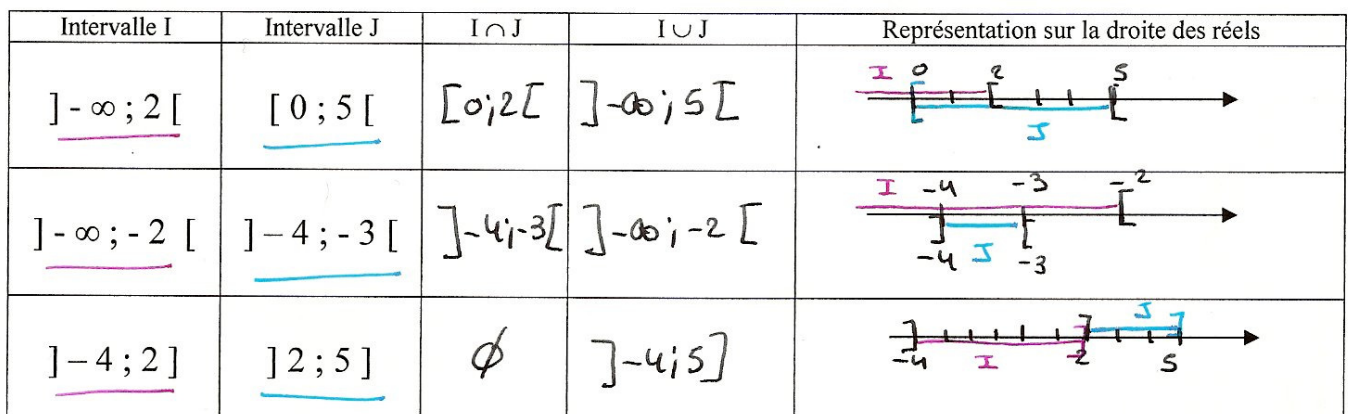 Intervalle I Intervalle J I ∩ J I ∪ J Représentation sur la droite des réels
I 0 2 5
] - ∞ ; 2 [ [ 0 ; 5 [ [0;2[ ]-∞;5[
J
I -4 -3 -2
] - ∞ ; - 2 [ ] – 4 ; - 3 [ ]-4;-3[ ]-∞;-2[
-4 J -3
J
] – 4 ; 2 ] ] 2 ; 5 ] ∅ ]-4;5]
-4 I 2 5